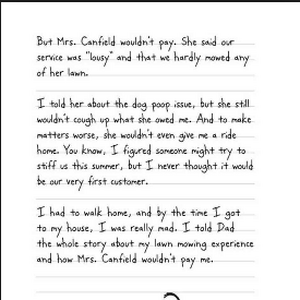 But Mrs. Canfield wouldn't pay. She said our
service was "lousy" and that we hardly mowed any
of her lawn.
I told her about the dog poop issue, but she still
wouldn't cough up what she owed me. And to make
matters worse, she wouldn't even give me a ride
home. You know, I figured someone might try to
stiff us this summer, but I never thought it would
be our very first customer.
I had to walk home, and by the time I got
to my house, I was really mad. I told Dad
the whole story about my lawn mowing experience
and how Mrs. Canfield wouldn't pay me.